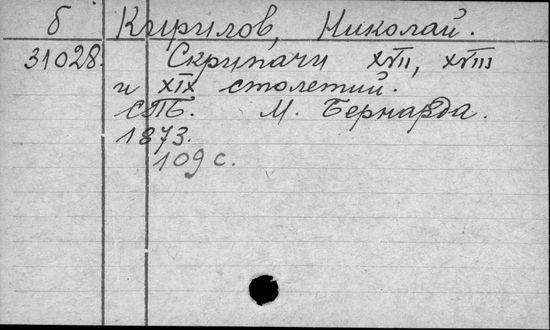 б Кирилов, Николай.
31028. Скрипачи XVII, XVIII
и XIX столетий.
СПБ. М. Бернарда.
1873.
109 с.